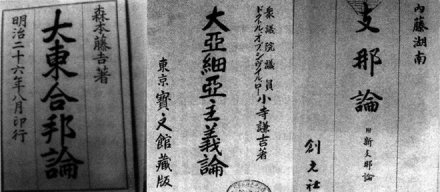 森本藤吉著
大東合邦論
明治二十六年八月印行
衆議院議員
ドクトルオブシヴイルロー
小寺謙吉著
大亞細亞主義論
東京寳文館藏版
内藤湖南
支那論
附新支那論
創元社